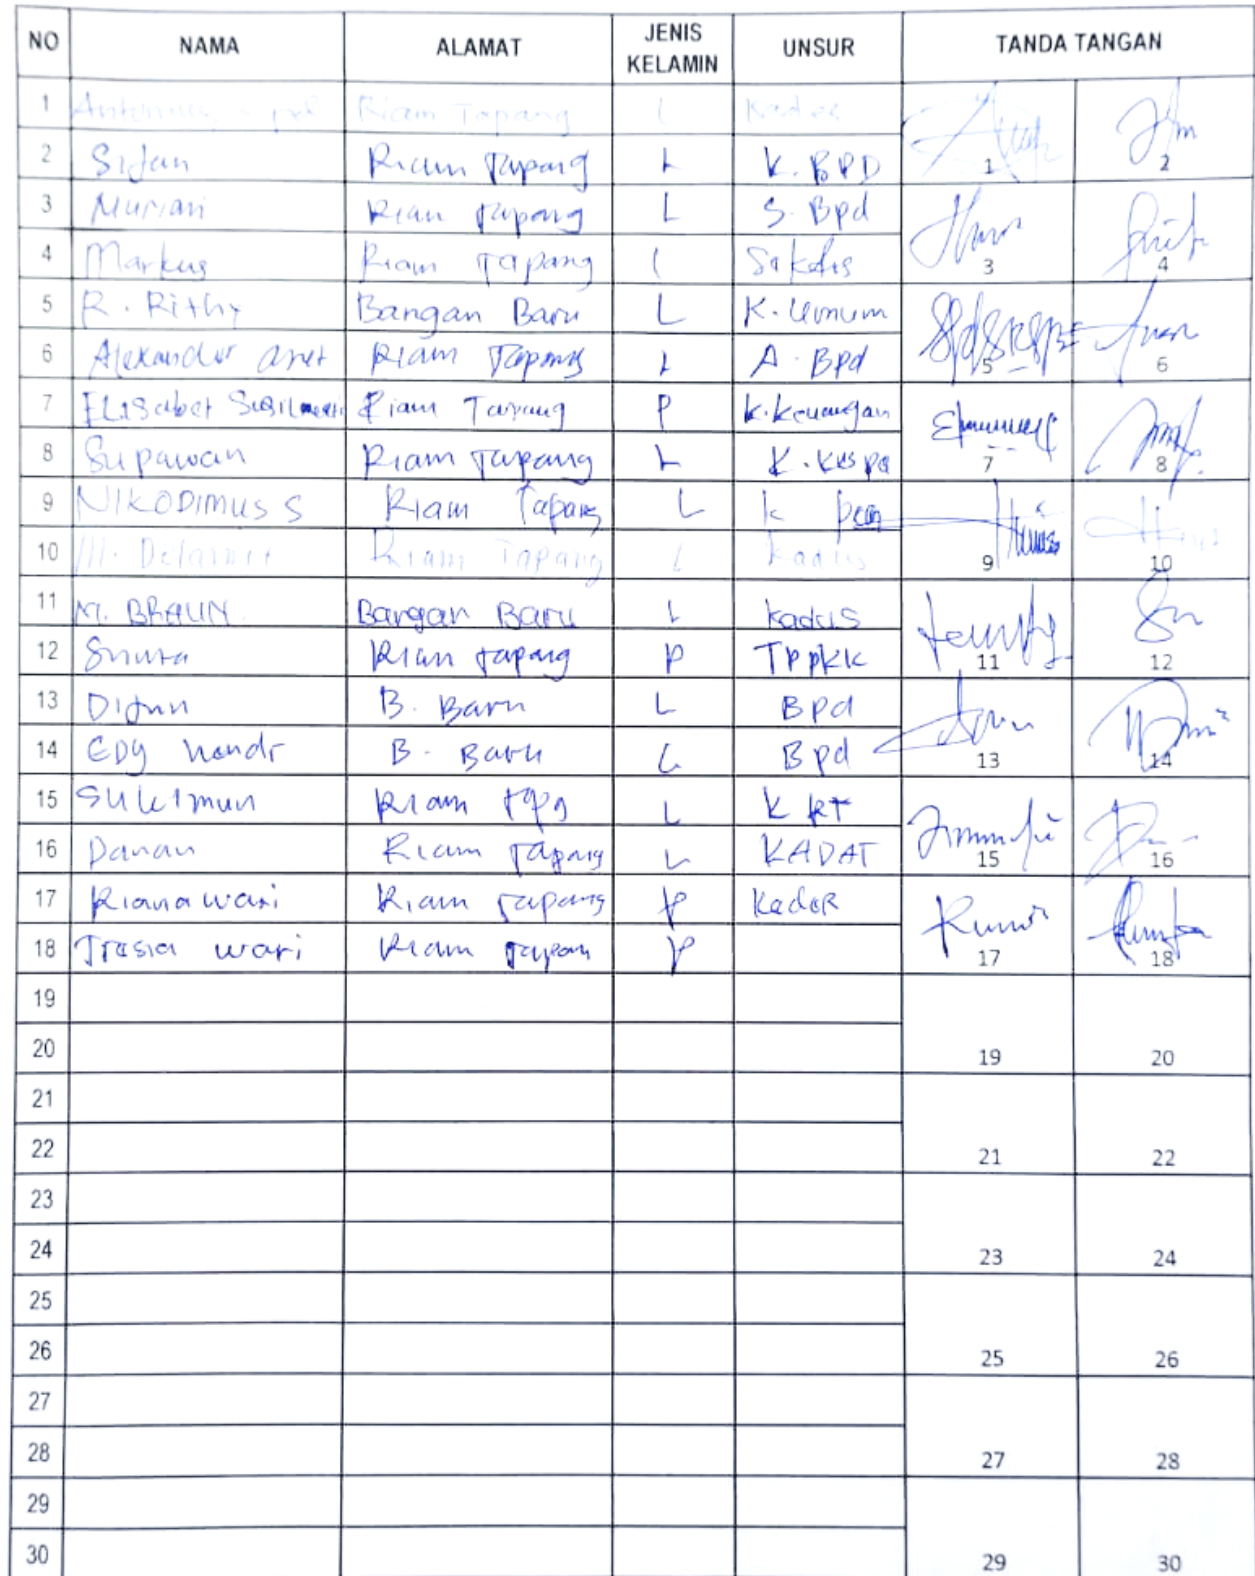 NO NAMA ALAMAT JENIS KELAMIN UNSUR TANDA TANGAN
1 Riam Tapang L 1 2
2 Sijan Riam Tapang L K. BPD
3 Muriani Riam Tapang L S. Bpd 3 4
4 Markus Riam Tapang L
5 R. Rithy Bangan Baru L K. Umum 5 6
6 Alexander Riam Tapang L A. Bpd
7 ELisabet Riam Tapang P K. Keuangan 7 8
8 Supawan Riam Tapang L
9 NIKODIMUS S Riam Tapang L K 9 10
10 Riam Tapang L Kadus
11 M. BRAUN Bangan Baru L Kadus 11 12
12 Riam Tapang P TPPKK
13 B. Baru L Bpd 13 14
14 EDY B. Baru L Bpd
15 Riam Tpg L K RT 15 16
16 Danan Riam Tapang L KADAT
17 Rianawari Riam Tapang P KadeR 17 18
18 wari Riam Tapan P
19 19 20
20
21 21 22
22
23 23 24
24
25 25 26
26
27 27 28
28
29 29 30
30